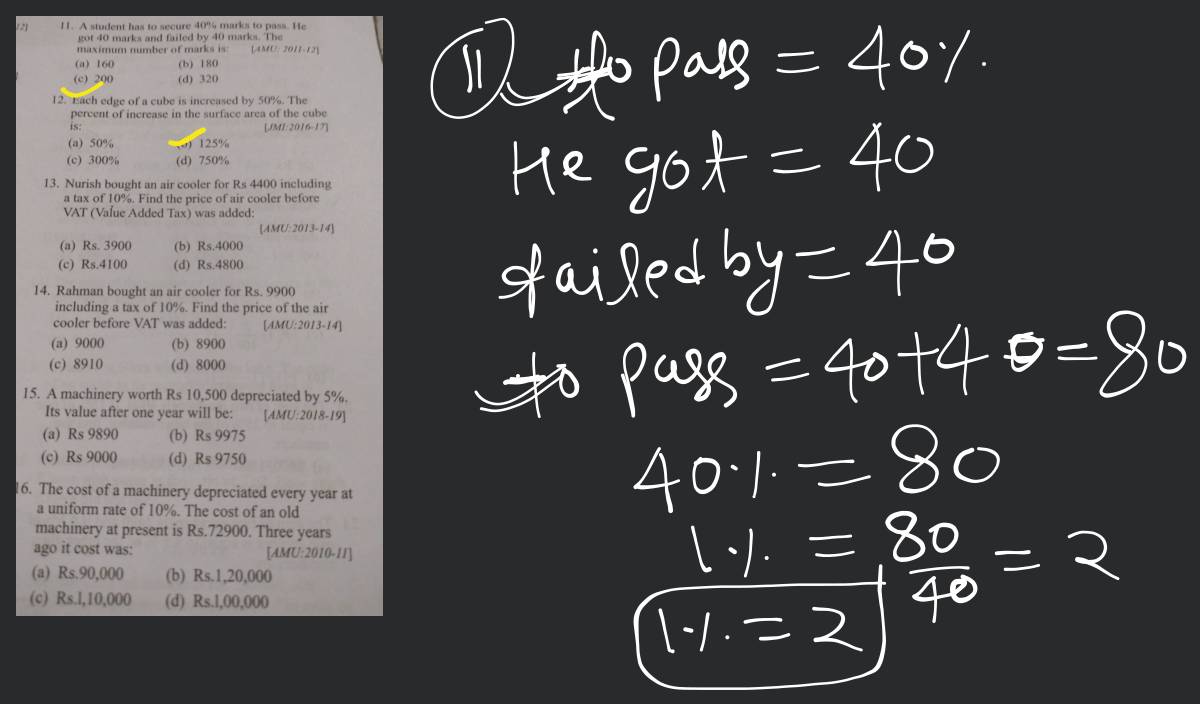 12]
11. A student has to secure 40% marks to pass. He
got 40 marks and failed by 40 marks. The
maximum number of marks is: [AMU: 2011-12]
(a) 160 (b) 180
(c) 200 (d) 320
12. Each edge of a cube is increased by 50%. The
percent of increase in the surface area of the cube
is: [JMI:2016-17]
(a) 50% (b) 125%
(c) 300% (d) 750%
13. Nurish bought an air cooler for Rs 4400 including
a tax of 10%. Find the price of air cooler before
VAT (Value Added Tax) was added:
[AMU:2013-14]
(a) Rs. 3900 (b) Rs.4000
(c) Rs.4100 (d) Rs.4800
14. Rahman bought an air cooler for Rs. 9900
including a tax of 10%. Find the price of the air
cooler before VAT was added: [AMU:2013-14]
(a) 9000 (b) 8900
(c) 8910 (d) 8000
15. A machinery worth Rs 10,500 depreciated by 5%.
Its value after one year will be: [AMU:2018-19]
(a) Rs 9890 (b) Rs 9975
(c) Rs 9000 (d) Rs 9750
16. The cost of a machinery depreciated every year at
a uniform rate of 10%. The cost of an old
machinery at present is Rs.72900. Three years
ago it cost was: [AMU:2010-11]
(a) Rs.90,000 (b) Rs.1,20,000
(c) Rs.1,10,000 (d) Rs.1,00,000
11 to pass = 40%
He got = 40
failed by = 40
to pass = 40+40=80
40% = 80
1% = 80/40 = 2
1% = 2